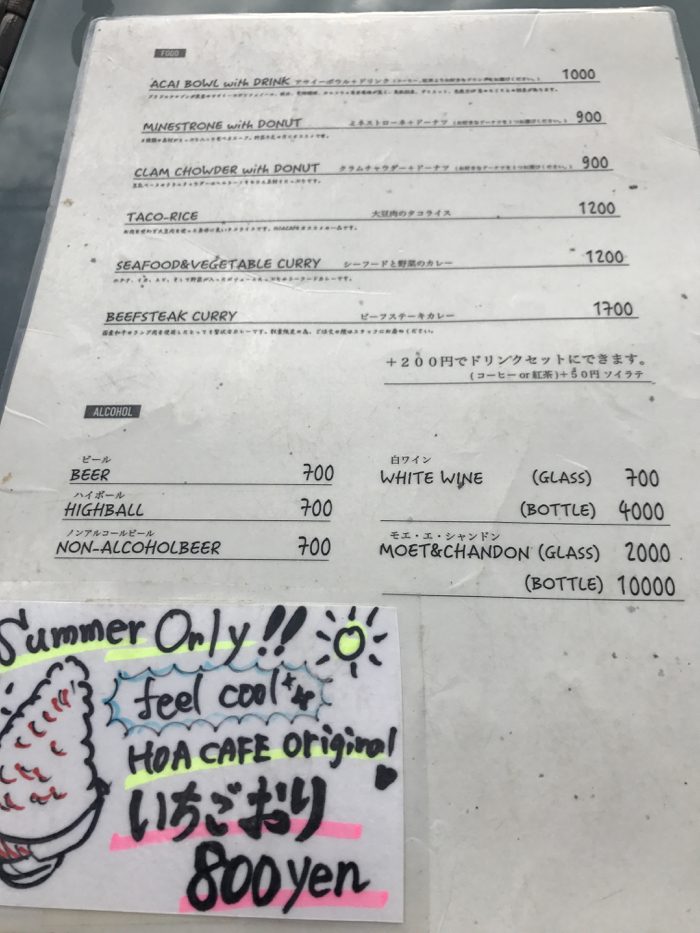 FOOD
ACAI BOWL with DRINK アサイーボウル+ドリンク 1000
MINESTRONE with DONUT ミネストローネ+ドーナツ 900
CLAM CHOWDER with DONUT クラムチャウダー+ドーナツ 900
TACO-RICE 大豆肉のタコライス 1200
SEAFOOD&VEGETABLE CURRY シーフードと野菜のカレー 1200
BEEFSTEAK CURRY ビーフステーキカレー 1700
+200円でドリンクセットにできます。
(コーヒーor紅茶)+50円 ソイラテ
ALCOHOL
ビール
BEER 700
ハイボール
HIGHBALL 700
ノンアルコールビール
NON-ALCOHOLBEER 700
白ワイン
WHITE WINE (GLASS) 700
(BOTTLE) 4000
モエ・エ・シャンドン
MOET&CHANDON (GLASS) 2000
(BOTTLE) 10000
Summer Only!!
feel cool
HOA CAFE original
いちごおり
800yen